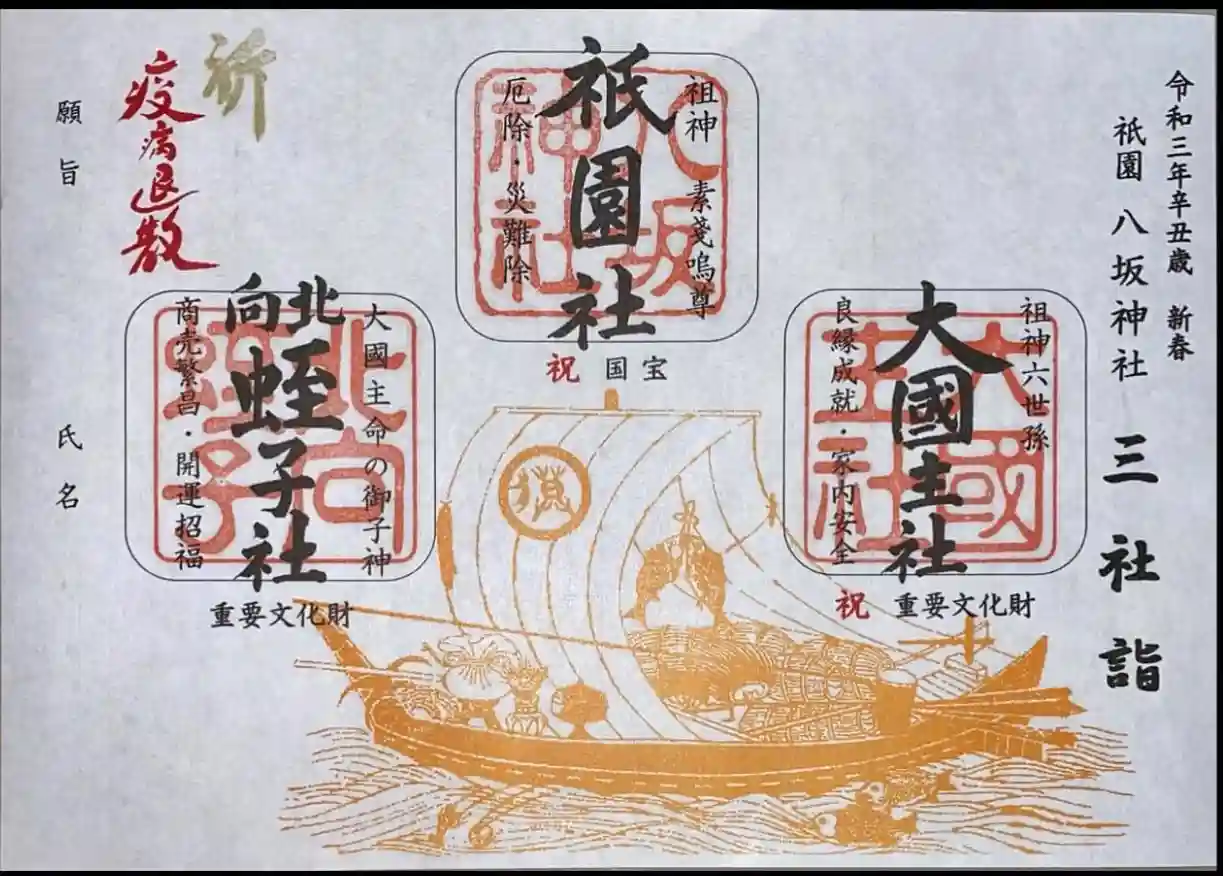 令和三年辛丑歳 新春
祇園 八坂神社 三社詣
祖神六世孫
大國主社
良縁成就・家内安全
大國主社
祝 重要文化財
祖神 素戔嗚尊
祇園社
厄除・災難除
八坂神社
祝 国宝
大國主命の御子神
北向
蛭子社
商売繁昌・開運招福
北向蛭子
重要文化財
祈
疫病退散
願旨
氏名